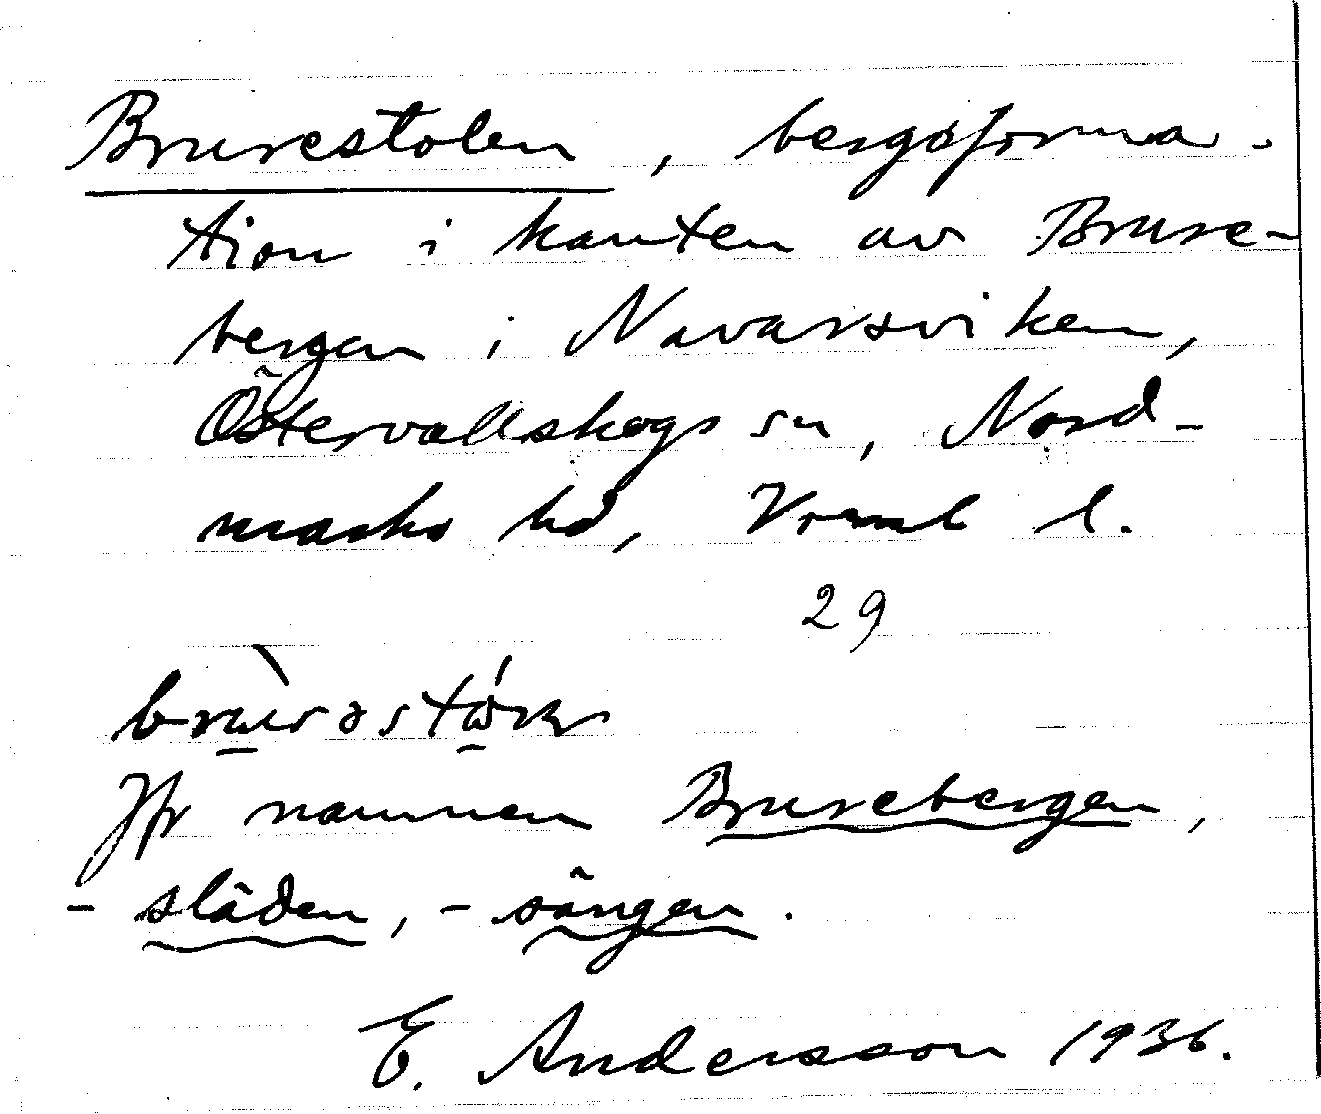 Brurestolen, bergsforma-
tion i kanten av Brure-
bergen i Navarsviken,
Östervallskogs sn, Nord-
marks hd, Vrml l.
29
Jfr namnen Brurebergen,
-släden, -sängen.
E. Andersson 1936.